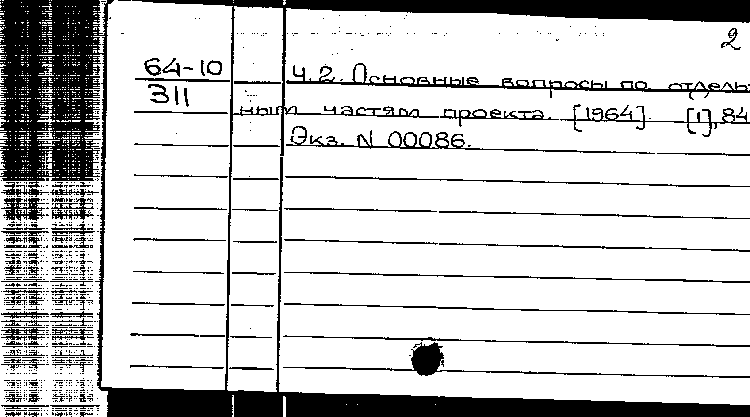 2
64-10 Ч.2. Основные вопросы по отдель-
311 ным частям проекта. [1964]. [1], 84
Экз. N 00086.